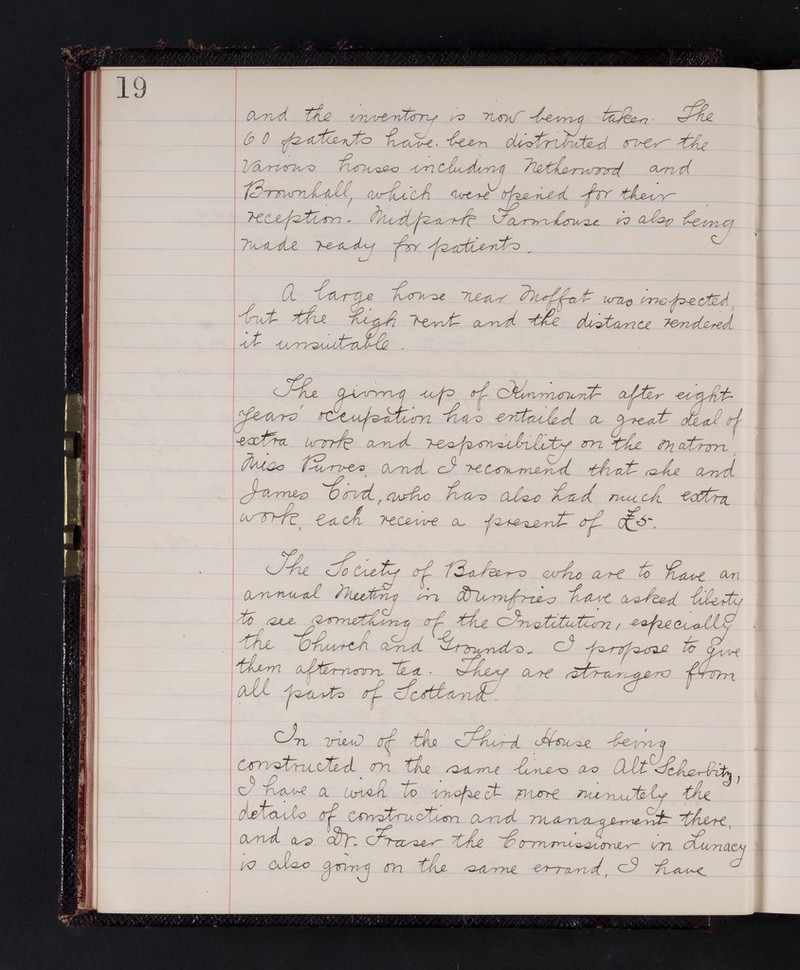 19
and the inventory is now being taken. The
60 patients have been distributed over the
various houses including Netherwood and
Brownhall, which were opened for their
reception. Midpark Farmhouse is also being
made ready for patients.
A large house near Moffat was inspected,
but the high rent and the distance rendered
it unsuitable.
The giving up of Kinmount after eight
years' occupation has entailed a great deal of
extra work and responsibility on the Matron,
Miss Purves, and I recommend that she and
James Coid, who has also had much extra
work, each receive a present of £5.
The Society of Bakers who are to have an
annual Meeting in Dumfries have asked liberty
to see something of the Institution, especially
the Church and Grounds. I propose to give
them afternoon tea. They are strangers from
all parts of Scotland.
In view of the Third House being
constructed on the same lines as Alt Scherbitz,
I have a wish to inspect more minutely the
details of construction and management there,
and as Dr. Fraser the Commissioner in Lunacy
is also going on the same errand, I have